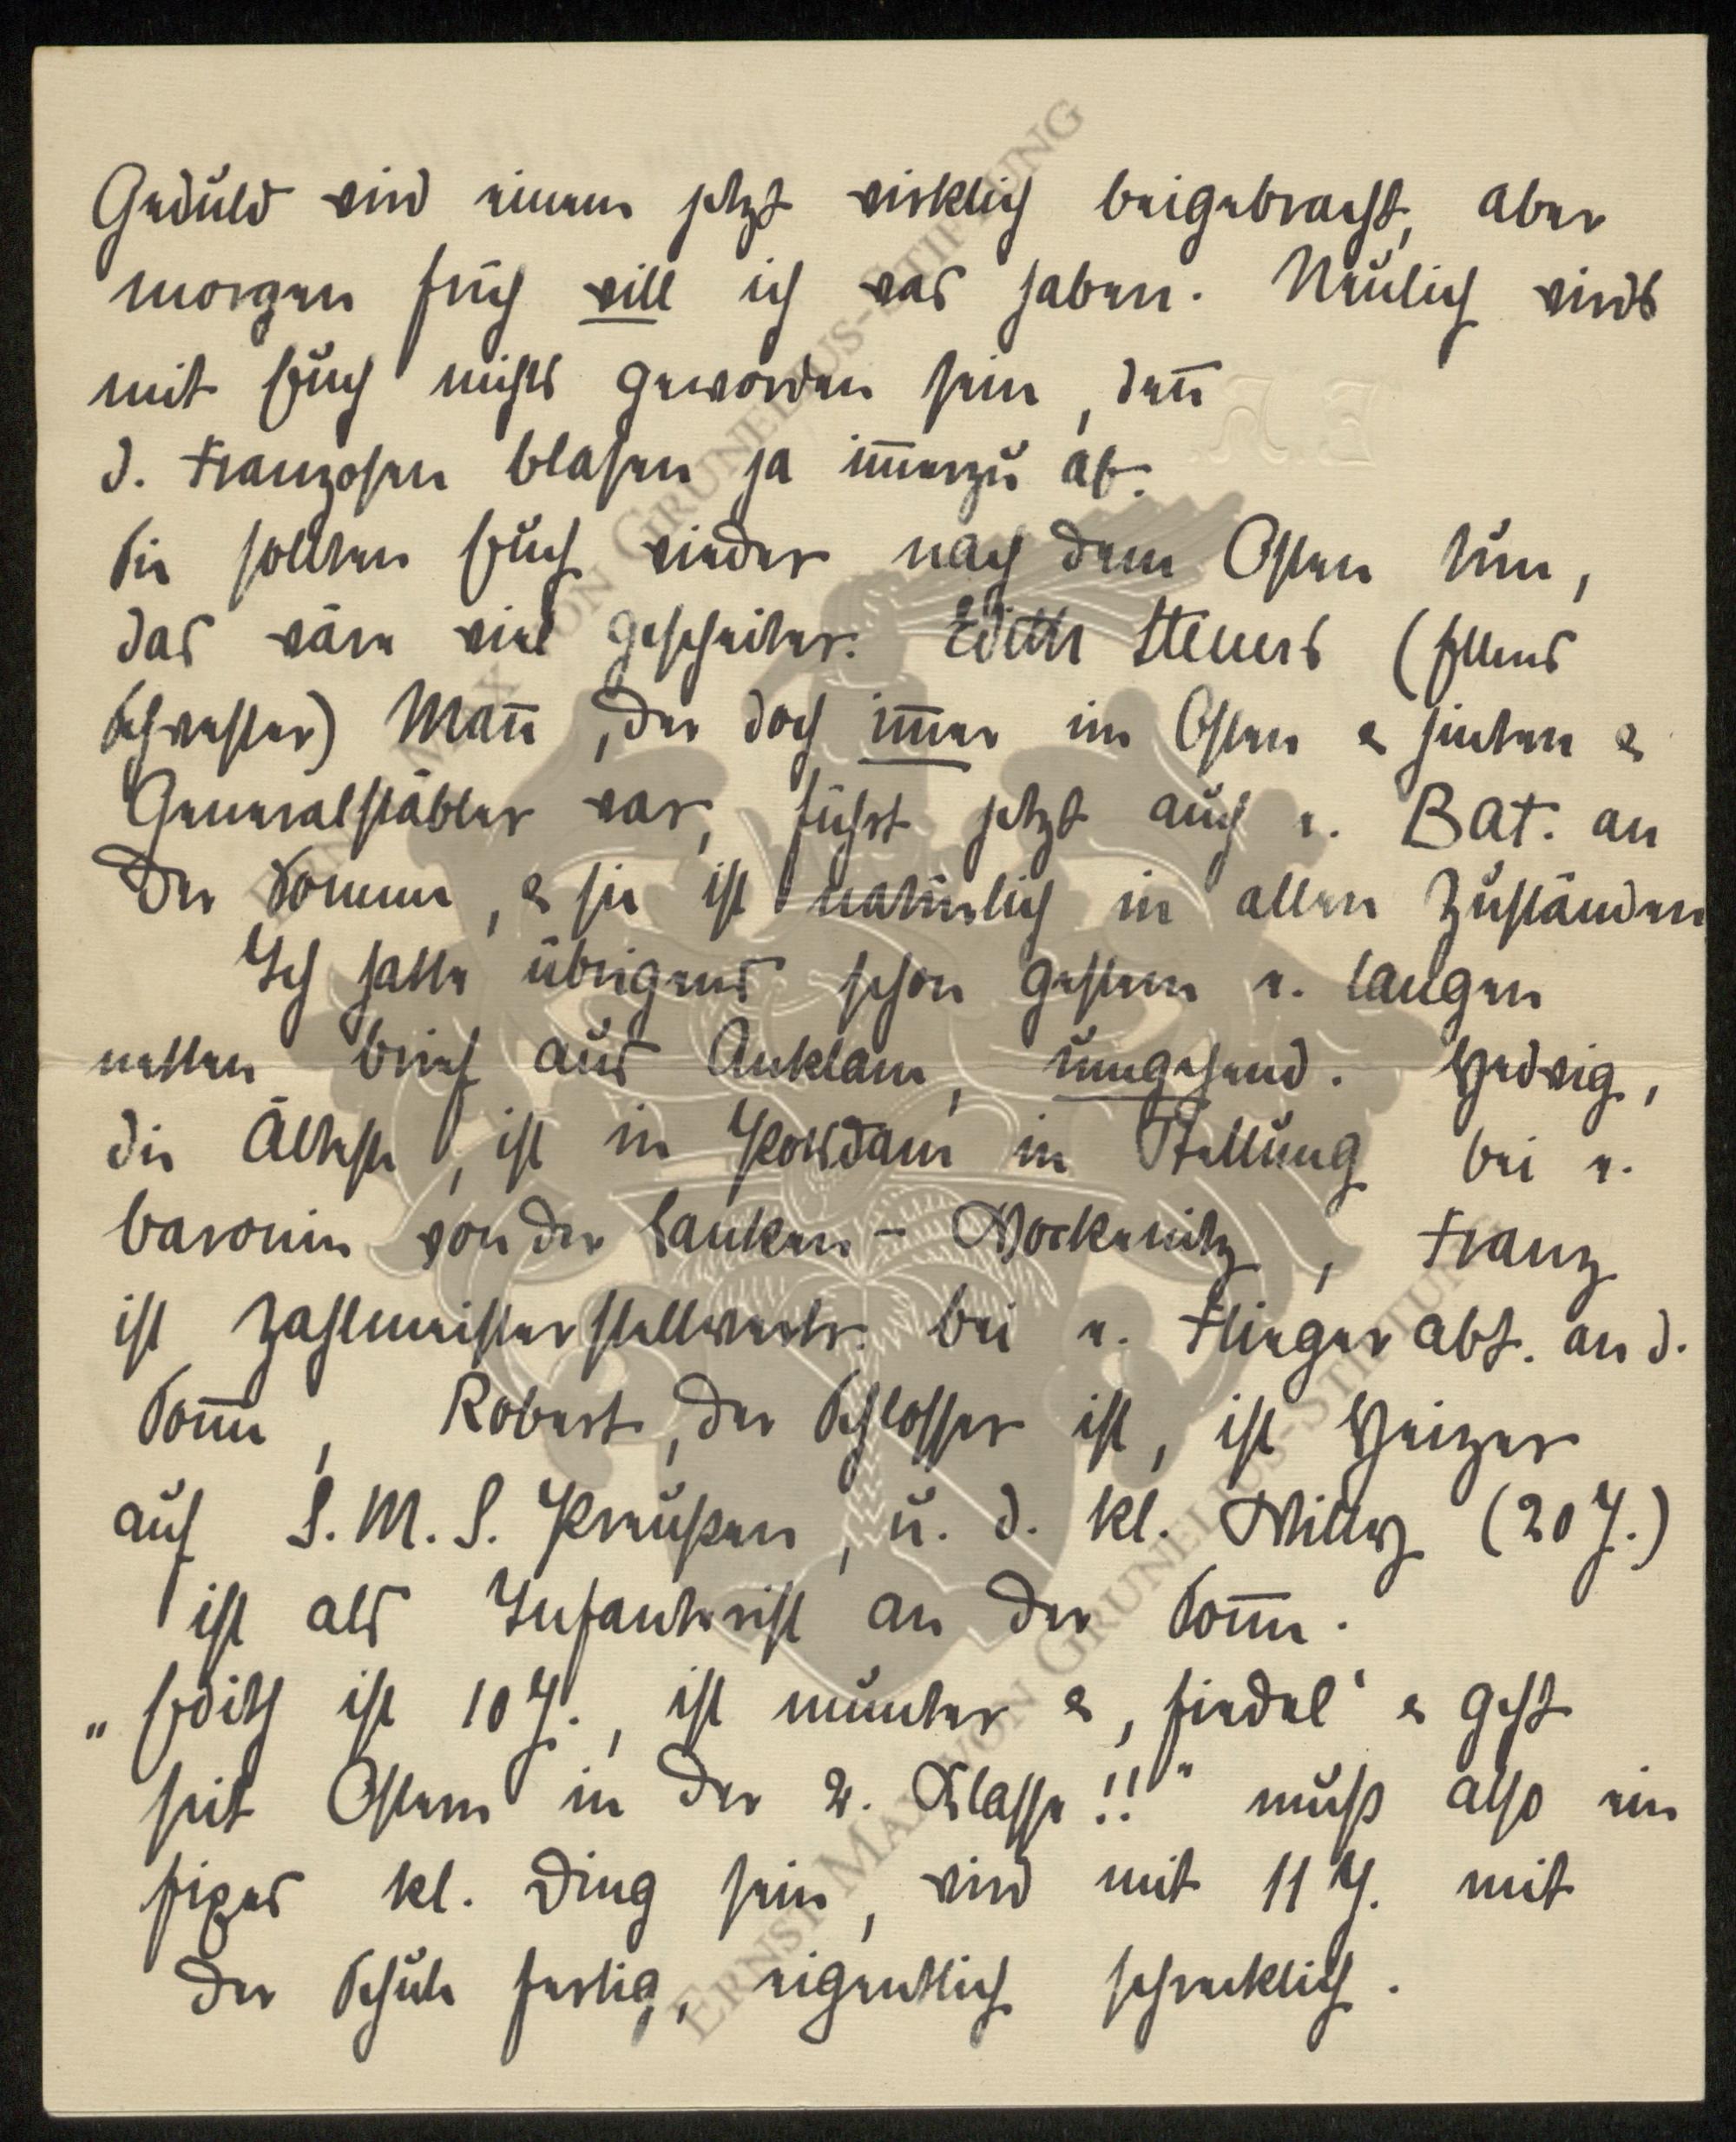 Geduld wird einem jetzt wirklich beigebracht, aber
morgen früh will ich was haben. Neulich wirds
mit Euch nichts geworden sein, den̅
d. Franzosen blasen ja im̅erzu ab.
Sie sollten Euch wieder nach dem Osten tun,
das wäre viel gescheiter. Edith Steuers (Ellens
Schwester) Man̅, der doch im̅er im Osten & hinten &
Generalstäbler war, führt jetzt auch e. Bat. an
der Somme, & sie ist natürlich in allen Zuständen
Ich hatte übrigens schon gestern e. langen
netten Brief aus Anklam, umgehend. Hedwig,
die Älteste, ist in Potsdam in Stellung bei e.
Baronin von der Lanken-Wockenitz, Franz
ist Zahlmeisterstellvertr. bei e. Fliegerabt. an d.
Som̅e, Robert, der Schlosser ist, ist Heizer
auf S.M.S. Preußen, u. d. kl. Willy (20 J.)
ist als Infanterist an der Som̅e.
„Edith ist 10 J., ist munter & ‚fiedel‘ & geht
seit Ostern in der 2. Klasse!!" muß also ein
fixes kl. Ding sein, wird mit 11 J. mit
der Schule fertig, eigentlich schrecklich.
E. K.
ERNST MAX VON GRUNELIUS-STIFTUNG
ERNST MAX VON GRUNELIUS-STIFTUNG